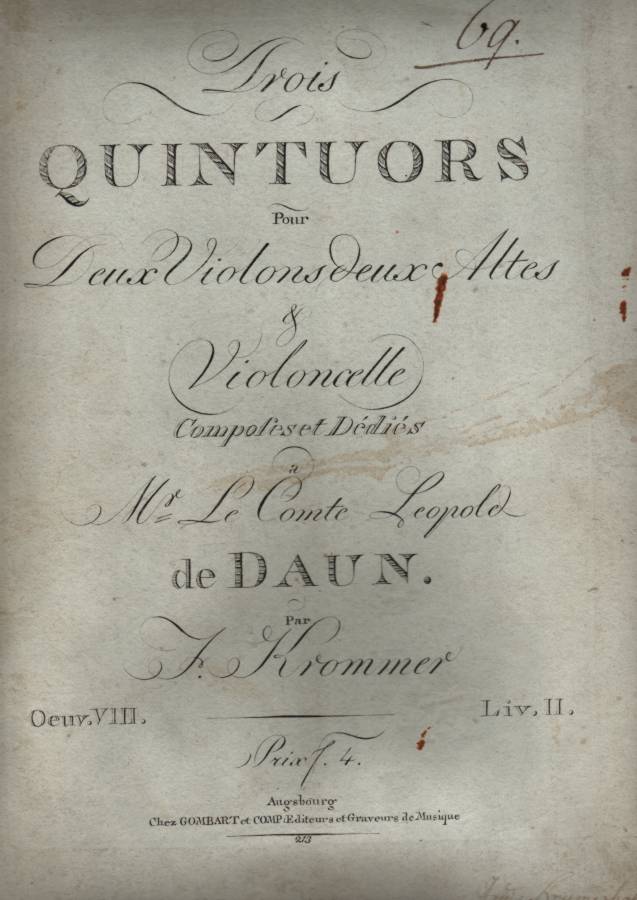 69.
Trois
QUINTUORS
Pour
Deux Violons deux Altes
&
Violoncelle
Composés et Dédiés
à
Mr. Le Comte Leopold
de DAUN.
Par
F. Krommer
Oeuv. VIII. Liv. II.
Prix f. 4.
Augsbourg
Chez GOMBART et COMP: Editeurs et Graveurs de Musique
213